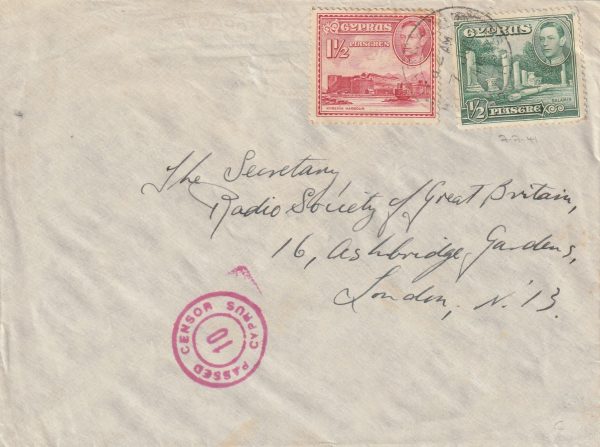 CYPRUS
1½ PIASTRES
KYRENIA HARBOUR
CYPRUS
½ PIASTRE
SALAMIS
7-7-41
The Secretary,
Radio Society of Great Britain,
16, Ashbridge Gardens,
London, N.13.
PASSED CENSOR CYPRUS
10